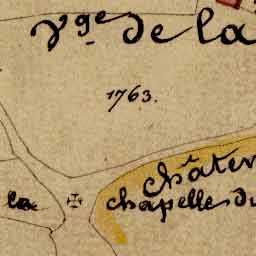 Vge de la
1763.
Châten
la chapelles du